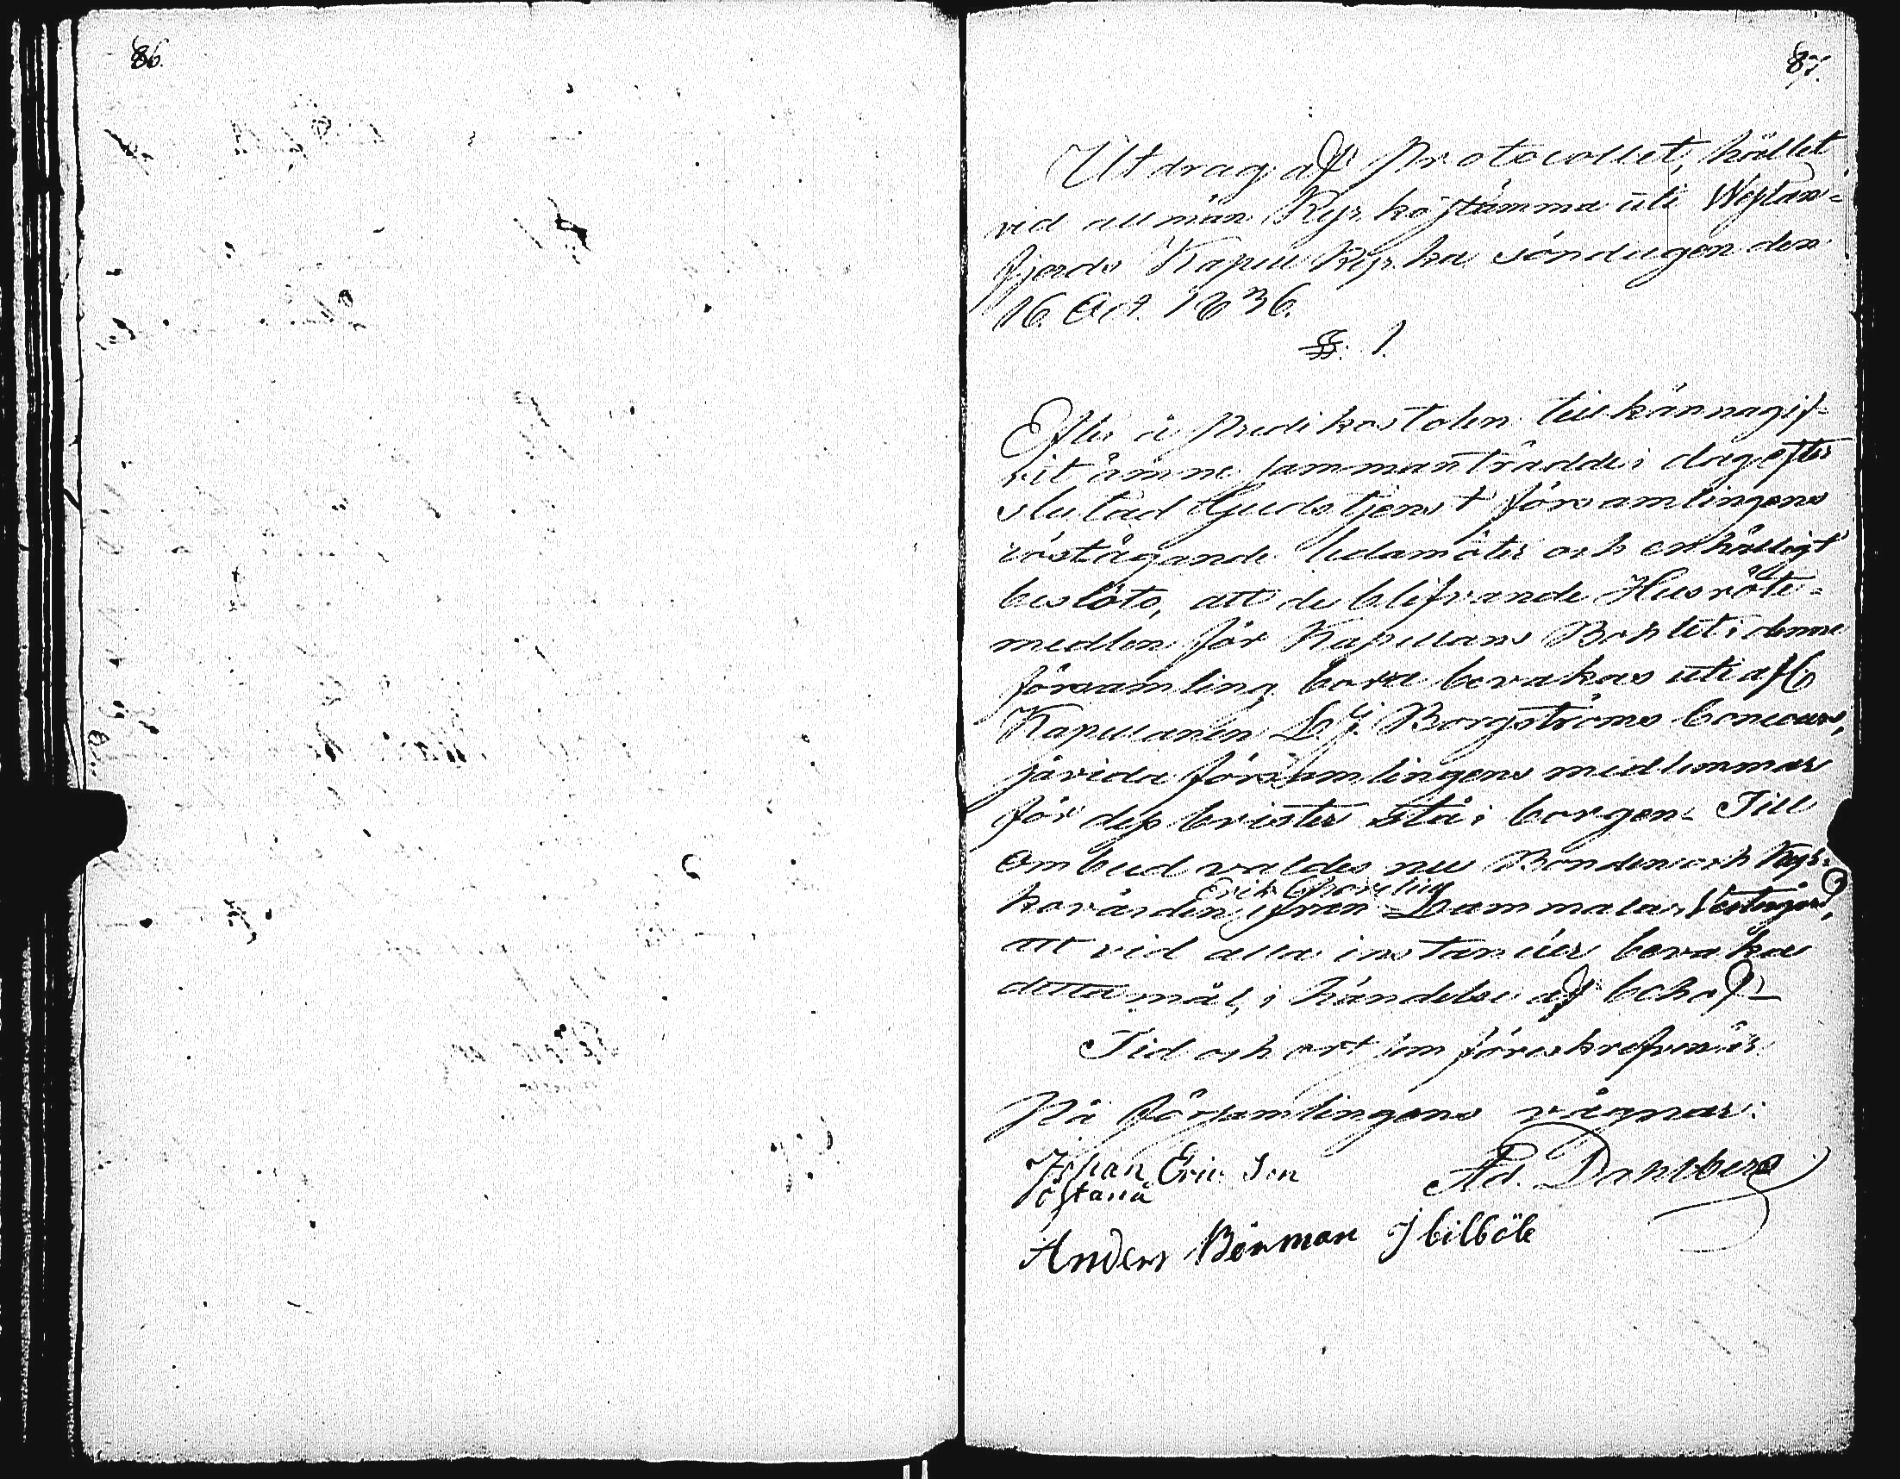 86.
87.
Utdrag af Protocollet, hållet
vid allmän Kyrkostämma uti Westan-
fjerds Kapell Kyrka söndagen den
16. Oct. 1836.
§. 1.
Efter å Predikostolen tillkännagif-
vit ämne sammanträdde i dag efter
slutad Gudstjenst församlingens
röstägande ledamöter och enhälligt
beslöto, att de blifvande Husröte-
medlen för Kapellans Bohlet i denne
församling borde bevakas uti afl.
Kapellanen L. J. Borgströms concours,
såvida församlingens medlemmar
för dess brister stå i borgen. Till
Ombud valdes nu Bonden och Kyr-
Erik
kovärden ifrån Lammala Vestergård,
att vid alla instancier bevaka
detta mål, i händelse af behof.
Tid och ort som föreskrefvne är
På församlingens vägnar:
Johan Ericson Ad. Dahlberg
östanå
Anders Börman I bilböle